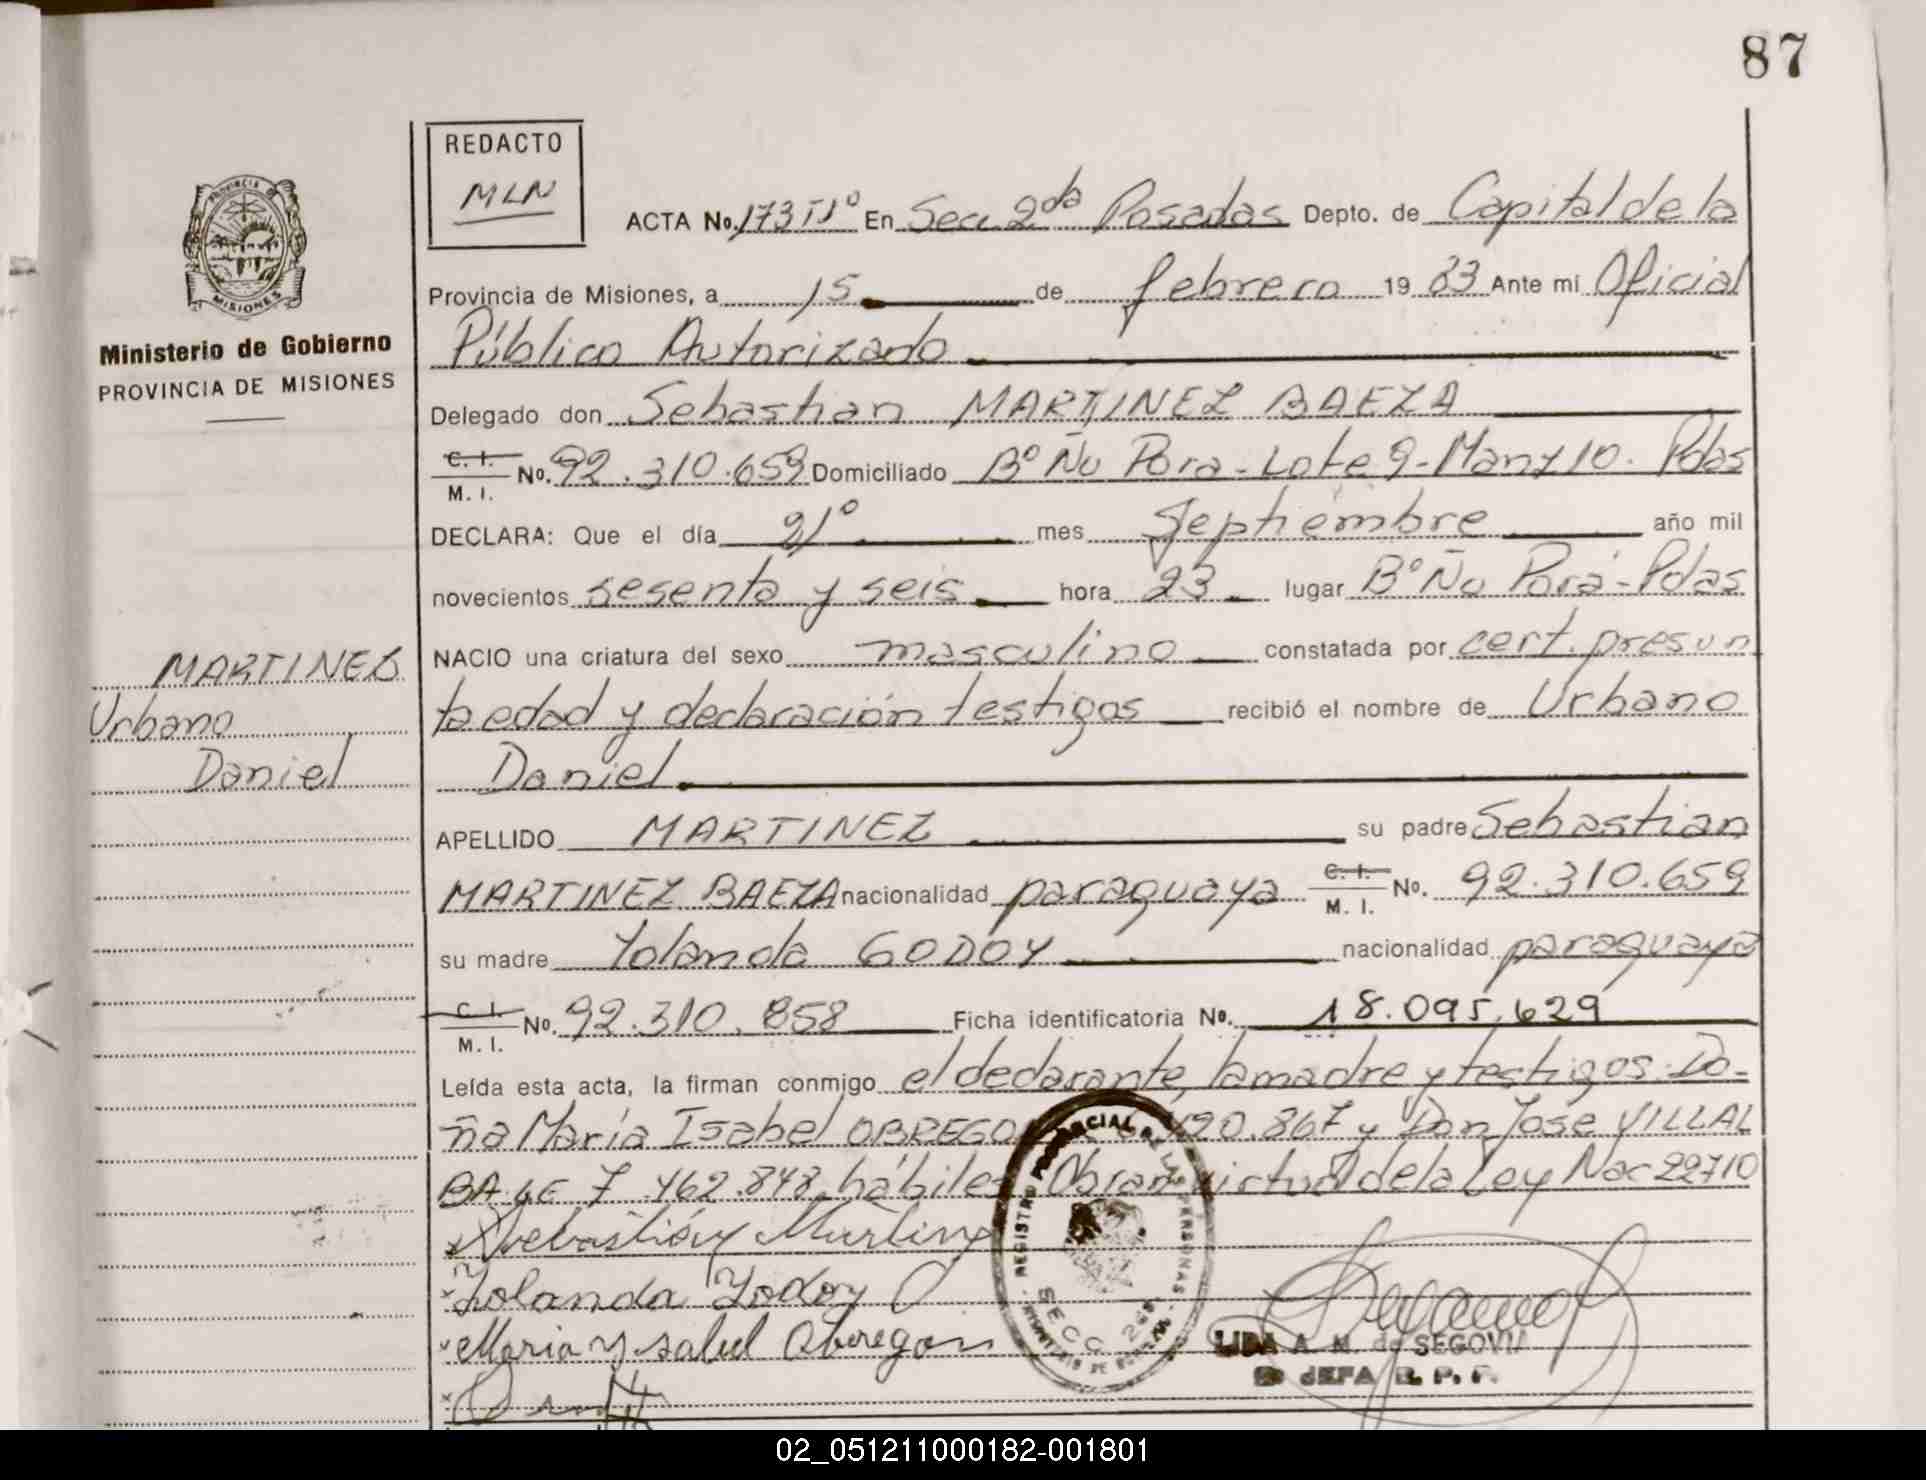 87
REDACTO
MLN
ACTA No. 173 Tº Iº En Secc. 2da Posadas Depto. de Capital de la
Provincia de Misiones, a 15 de febrero 19 83 Ante mi Oficial
Público Autorizado
Ministerio de Gobierno
PROVINCIA DE MISIONES
Delegado don Sebastian MARTINEZ BAEZA
C. I. No. 92.310.659 Domiciliado Bº Ñu Pora - Lote 9 - Manz 10. Pdas
M. I.
DECLARA: Que el día 21º mes Septiembre año mil
novecientos sesenta y seis hora 23 lugar Bº Ñu Porá - Pdas
MARTINEZ
Urbano
Daniel
NACIO una criatura del sexo masculino constatada por cert. presun
ta edad y declaración testigos recibió el nombre de Urbano
Daniel
APELLIDO MARTINEZ su padre Sebastian
MARTINEZ BAEZA nacionalidad paraguaya C. I. No. 92.310.659
M. I.
su madre Yolanda GODOY nacionalidad paraguaya
C. I. No. 92.310.858 Ficha identificatoria No. 18.095.629
M. I.
Leída esta acta, la firman conmigo el declarante, la madre y testigos: Do-
ña María Isabel OBREGO 490.867 y Don Jose VILLAL
BA 7.462.848 hábiles Obran virtud de la Ley Nac 22710
Sebastián Martinez
Yolanda Godoy
Maria Ysabel Obregon
REGISTRO PROVINCIAL DE LAS PERSONAS
SECC. 2da
LIDA A. M. de SEGOVIA
JEFA R. P. P.
02_051211000182-001801